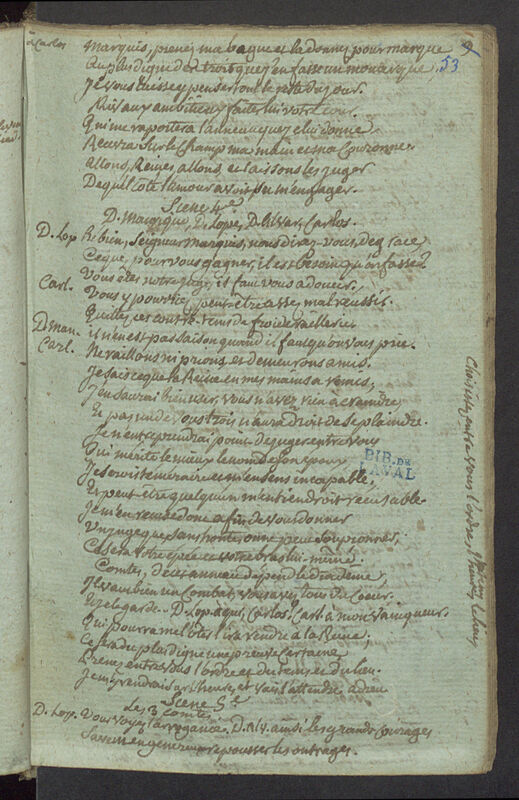 à Carlos
Marquis, prenés ma bague et la donnés pour marque
Au plus digne des trois que j'en fasse un monarque.
53
Je vous laisse y penser tout le reste du jour.
Rivaux ambitieux faites lui votre cour.
Qui me raportera l'anneau que je lui donne
Recevra sur le champ ma main et ma Couronne.
Allons, Reines, allons, et laissons les juger
De quel côté l'amour avoit su m'engager.
Scene 4e
D. Manrique, D. Lope, D. Alvar, Carlos.
D. Lop. He bien, Seigneur marquis, nous direz-vous, de grace
Ce que, pour vous gagner, il est besoin qu'on fasse?
Vous êtes notre juge, il faut vous adoucir.
Carl. Vous y pourriez peut être assez mal reussir.
Quittez ces contre-tems de froide raillerie
D. Man. il n'en est pas saison quand il faut qu'on vous prie.
Carl. Ne raillons ni prions, et demeurons amis.
Je sais ce que la Reine en mes mains a remis,
J'en saurai bien user, vous n'avez rien a craindre
Et pas un de vous trois n'aura droit de se plaindre.
Je n'entreprendrai point de juger entre vous
Qui mérite le mieux le nom de son epoux
Je serois téméraire et m'en sens incapable,
Et peut être quelqu'un m'en tiendroit recusable.
Je m'en recuse donc afin de vous donner
Un juge que sans honte on ne peut soupçonner,
Ce sera votre epée et votre bras lui-même.
Comtes, de cet anneau dépend le diadême,
Il vaut bien un Combat, vous avez tous du Coeur.
Et je le garde. D. Lop. à qui, Carlos? Carl. à mon vainqueur.
Qui pourra me l'ôter l'ira rendre à la Reine,
Ce sera du plus digne une preuve certaine
Prenez entre vous l'ordre et du tems et du lieu.
Je m'y rendrai sur l'heure, et vais l'attendre. adieu
Scene 5e
Les 3 Comtes
D. Lop. Vous voyez l'arrogance. D. Alv. ainsi les grands Courages
Savent en genereux repousser les outrages.
BIB. DE
LAVAL
Choisissez entre vous l'ordre,